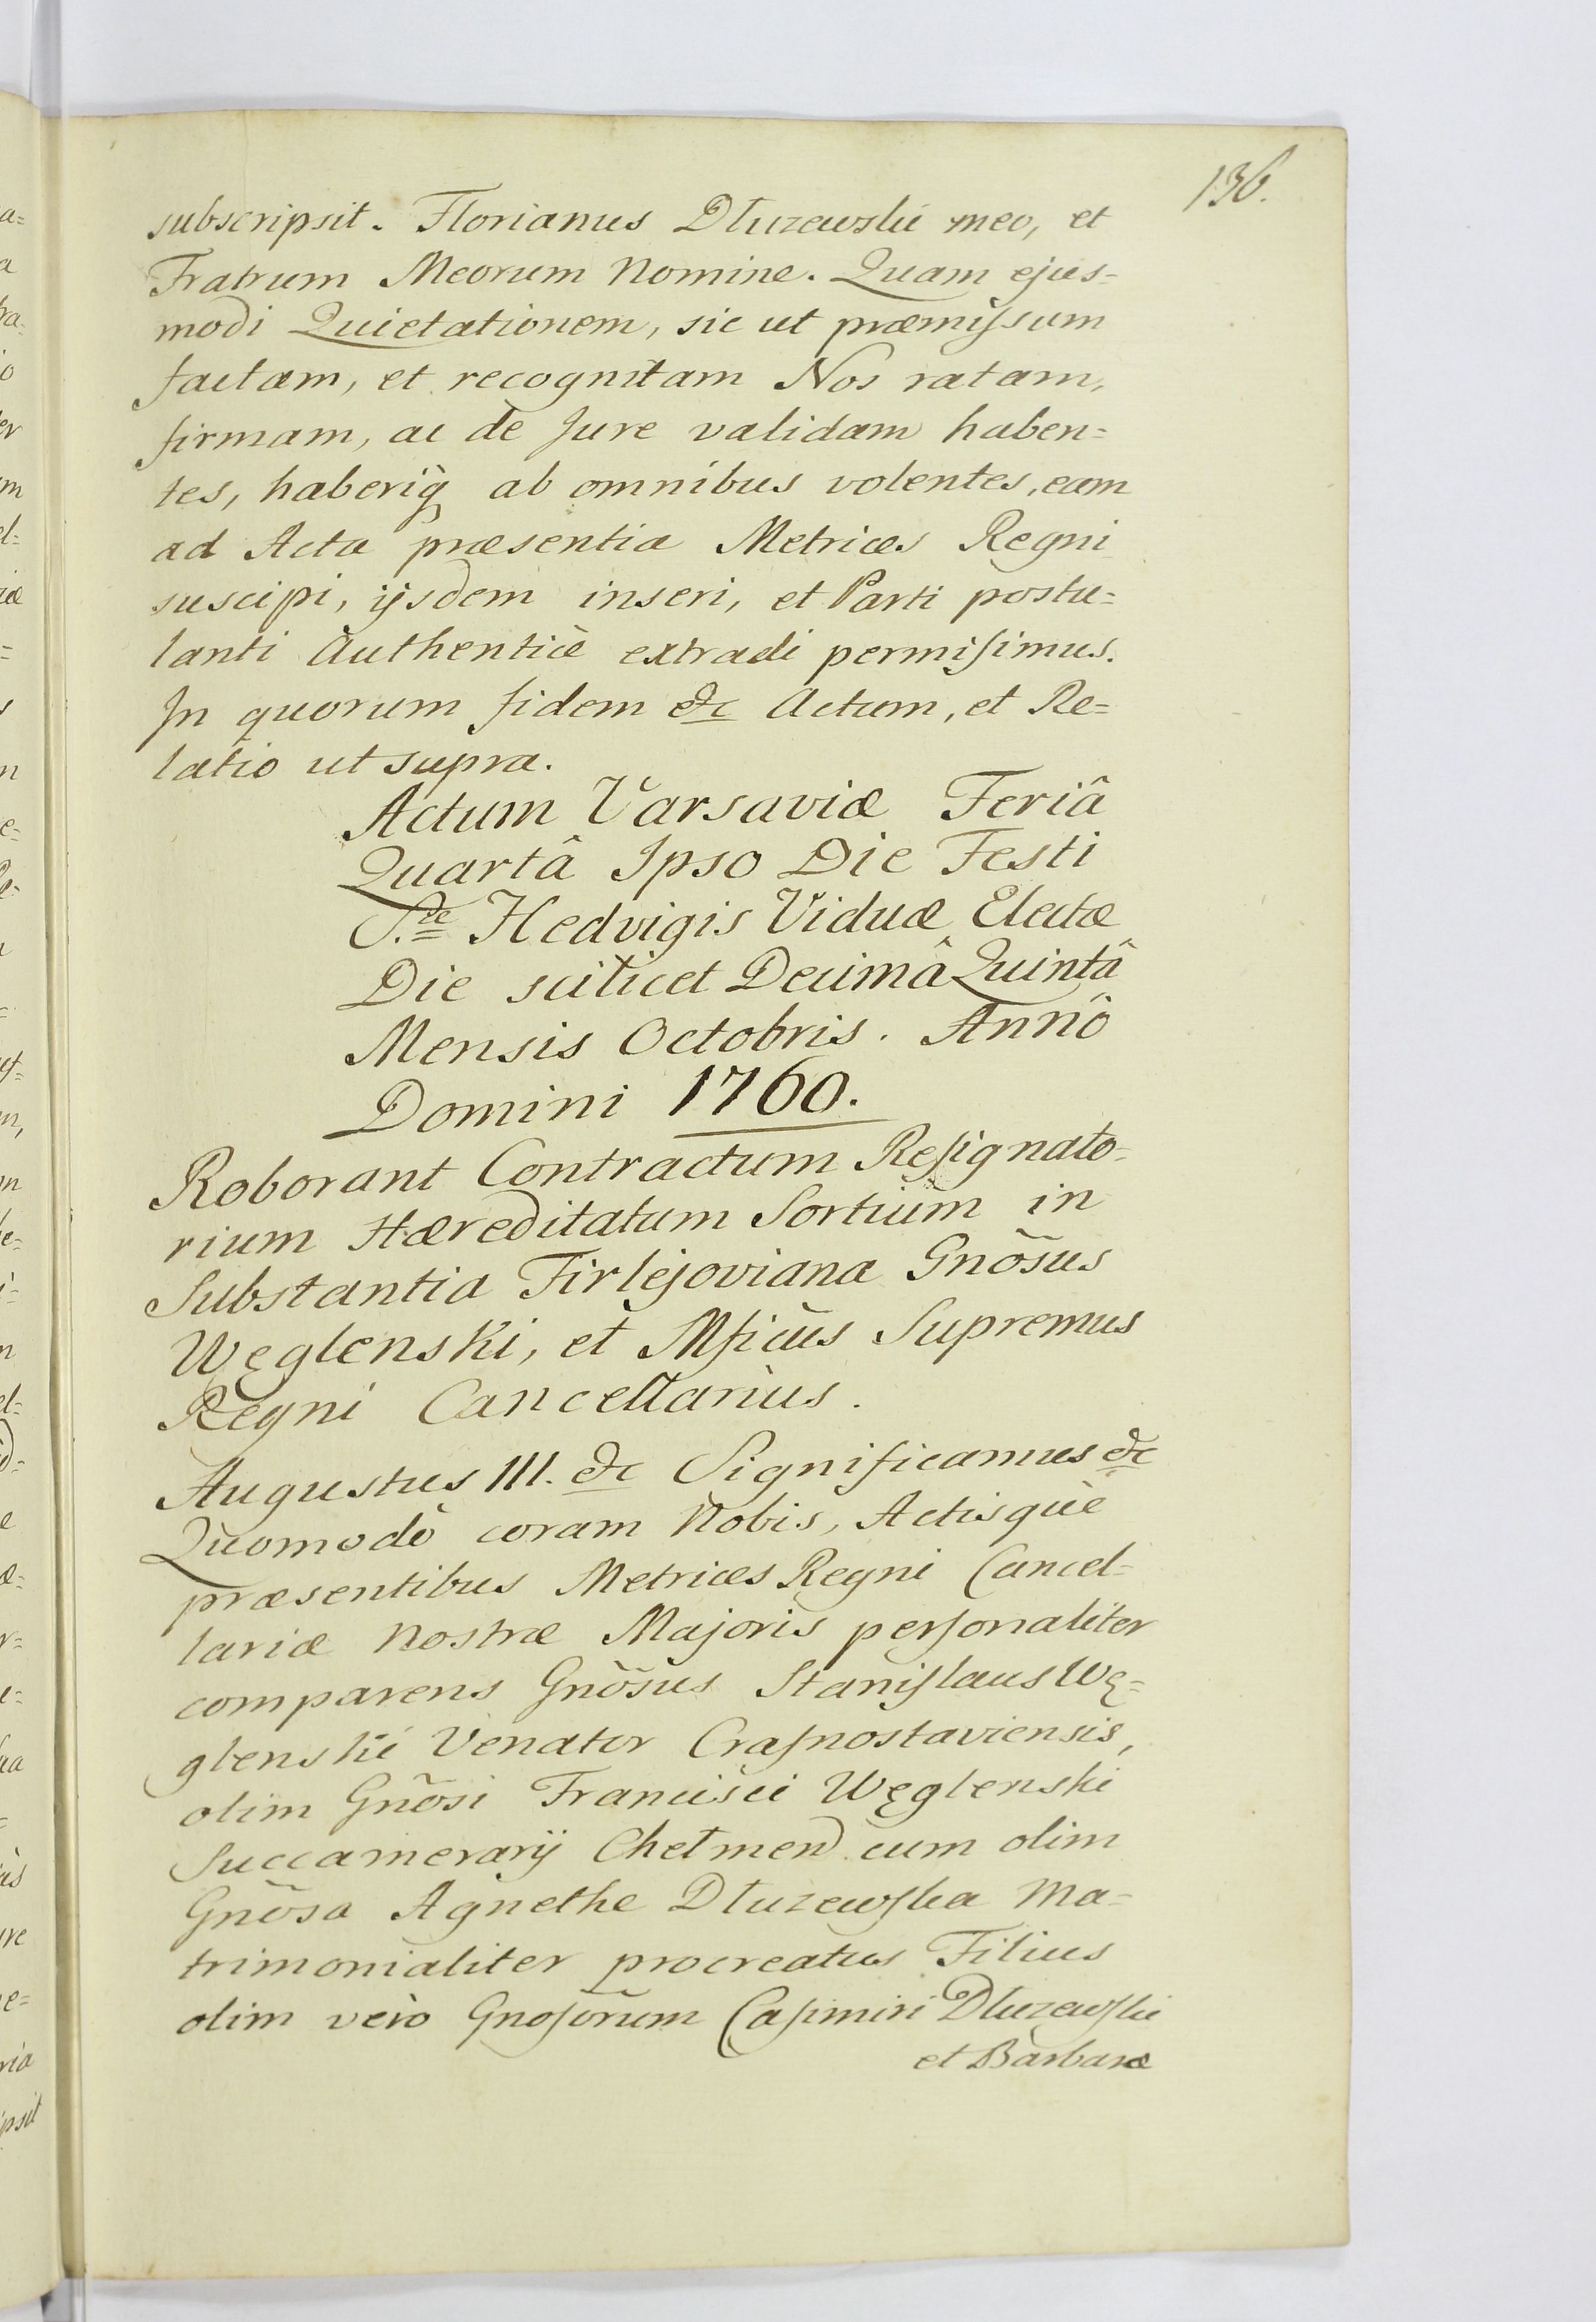 136.
subscripsit. Florianus Dłuzewski meo, et
Fratrum Meorum Nomine. Quam ejus=
modi Quietationem, sic ut præmissum
factam, et recognitam Nos ratam,
firmam, ac de Jure validam haben=
tes, haberiq̀ ab omnibus volentes, eam
ad Acta præsentia Metrices Regni
suscipi, ijsdem inseri, et Parti postu=
lanti Authenticè extradi permisimus.
In quorum fidem &c Actum, et Re=
latio ut supra.
Actum Varsaviæ Feriâ
Quartâ Ipso Die Festi
S.tæ Hedvigis Viduæ Electæ
Die scilicet Decimâ Quintâ
Mensis Octobris. Annô
Domini 1760.
Roborant Contractum Resignato=
rium Hæreditatum Sortium in
Substantia Firlejoviana Gnõsus
Węglenski, et Mficus Supremus
Regni Cancellarius.
Augustus III. &c Significamus &c
Quomodò coram Nobis, Actisquè
præsentibus Metrices Regni Cancel=
lariæ Nostræ Majoris personaliter
comparens Gnõsus Stanislaus Wę=
glenski Venator Crasnostaviensis,
olim Gnõsi Francisci Węglenski
Succamerarij Chełmen. cum olim
Gnõsa Agnethe Dłuzewska Ma=
trimonialiter procreatus Filius
olim verò Gnosorum Casimiri Dłuzewski
et Barbaræ